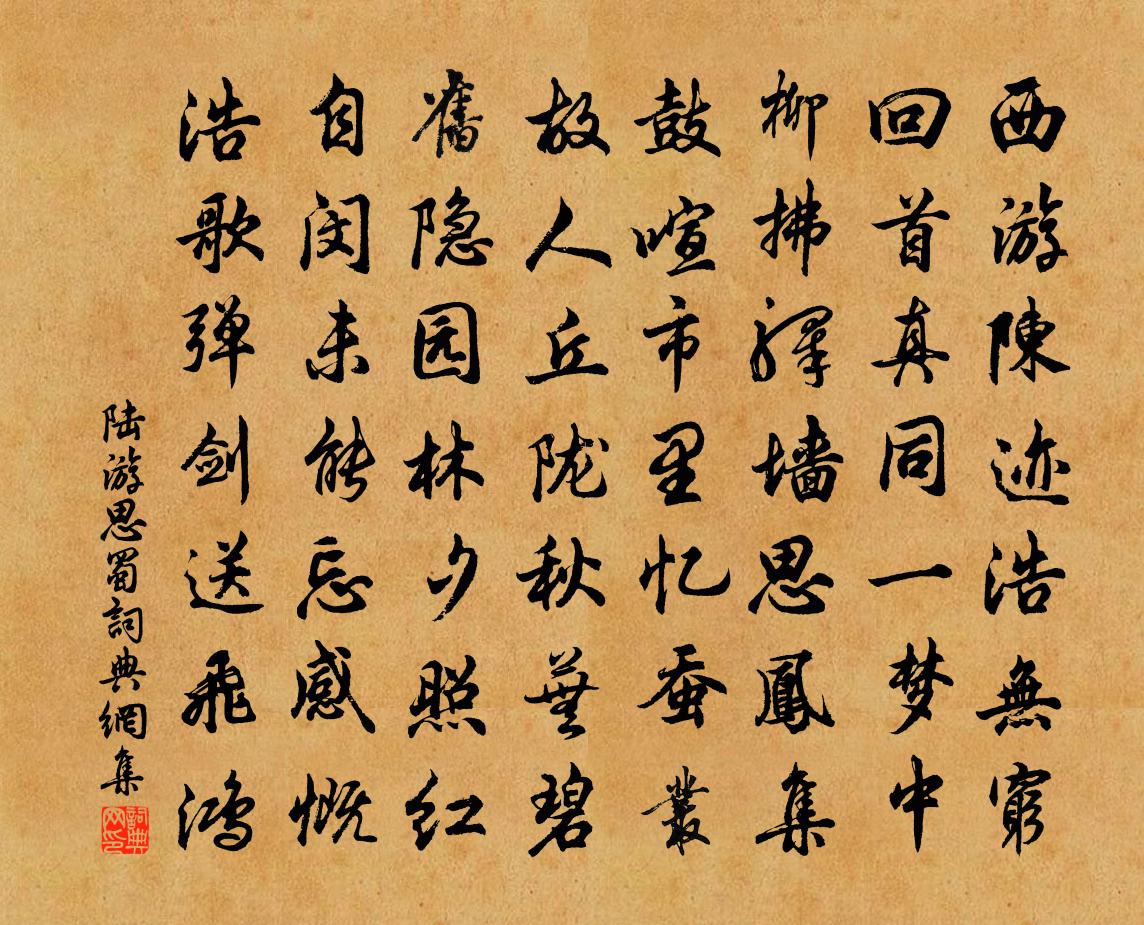 西游陳迹浩無窮
回首真同一梦中
柳拂驛墙思鳳集
鼓喧市里忆蚕叢
故人丘陇秋蕪碧
舊隐园林夕照红
自闵未能忘感慨
浩歌弹剑送飛鸿
陆游思蜀詞典網集
詞典网印